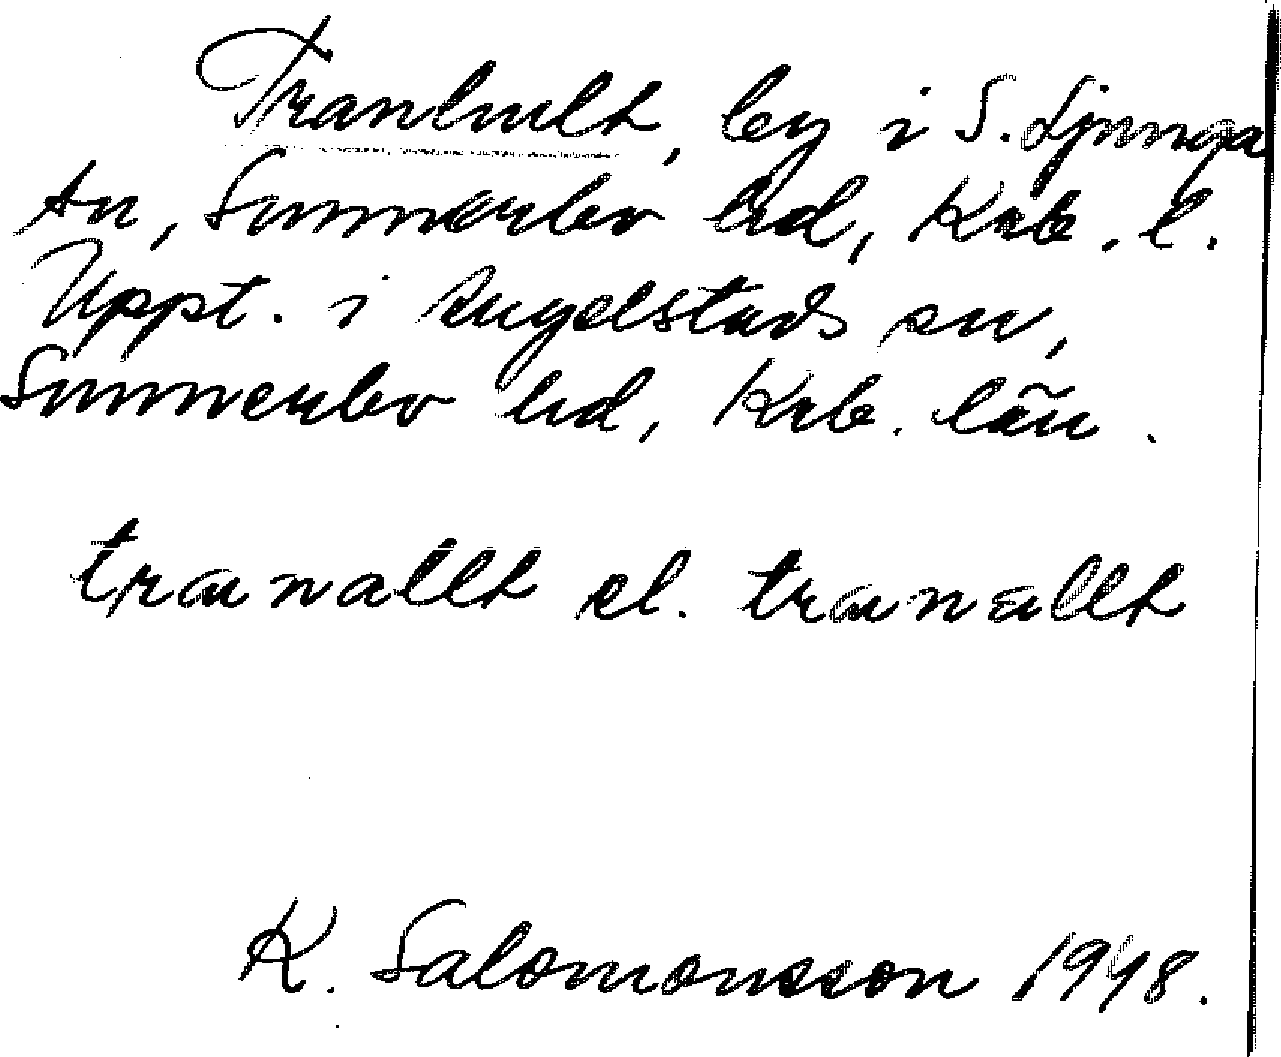 Tranhult, by i S. Ljunga
sn, Sunnerbo hd, Krb. l.
Uppt. i Angelstads sn,
Sunnerbo hd, Krb. län.
tranallt el. tranallt
K. Salomonsson 1948.